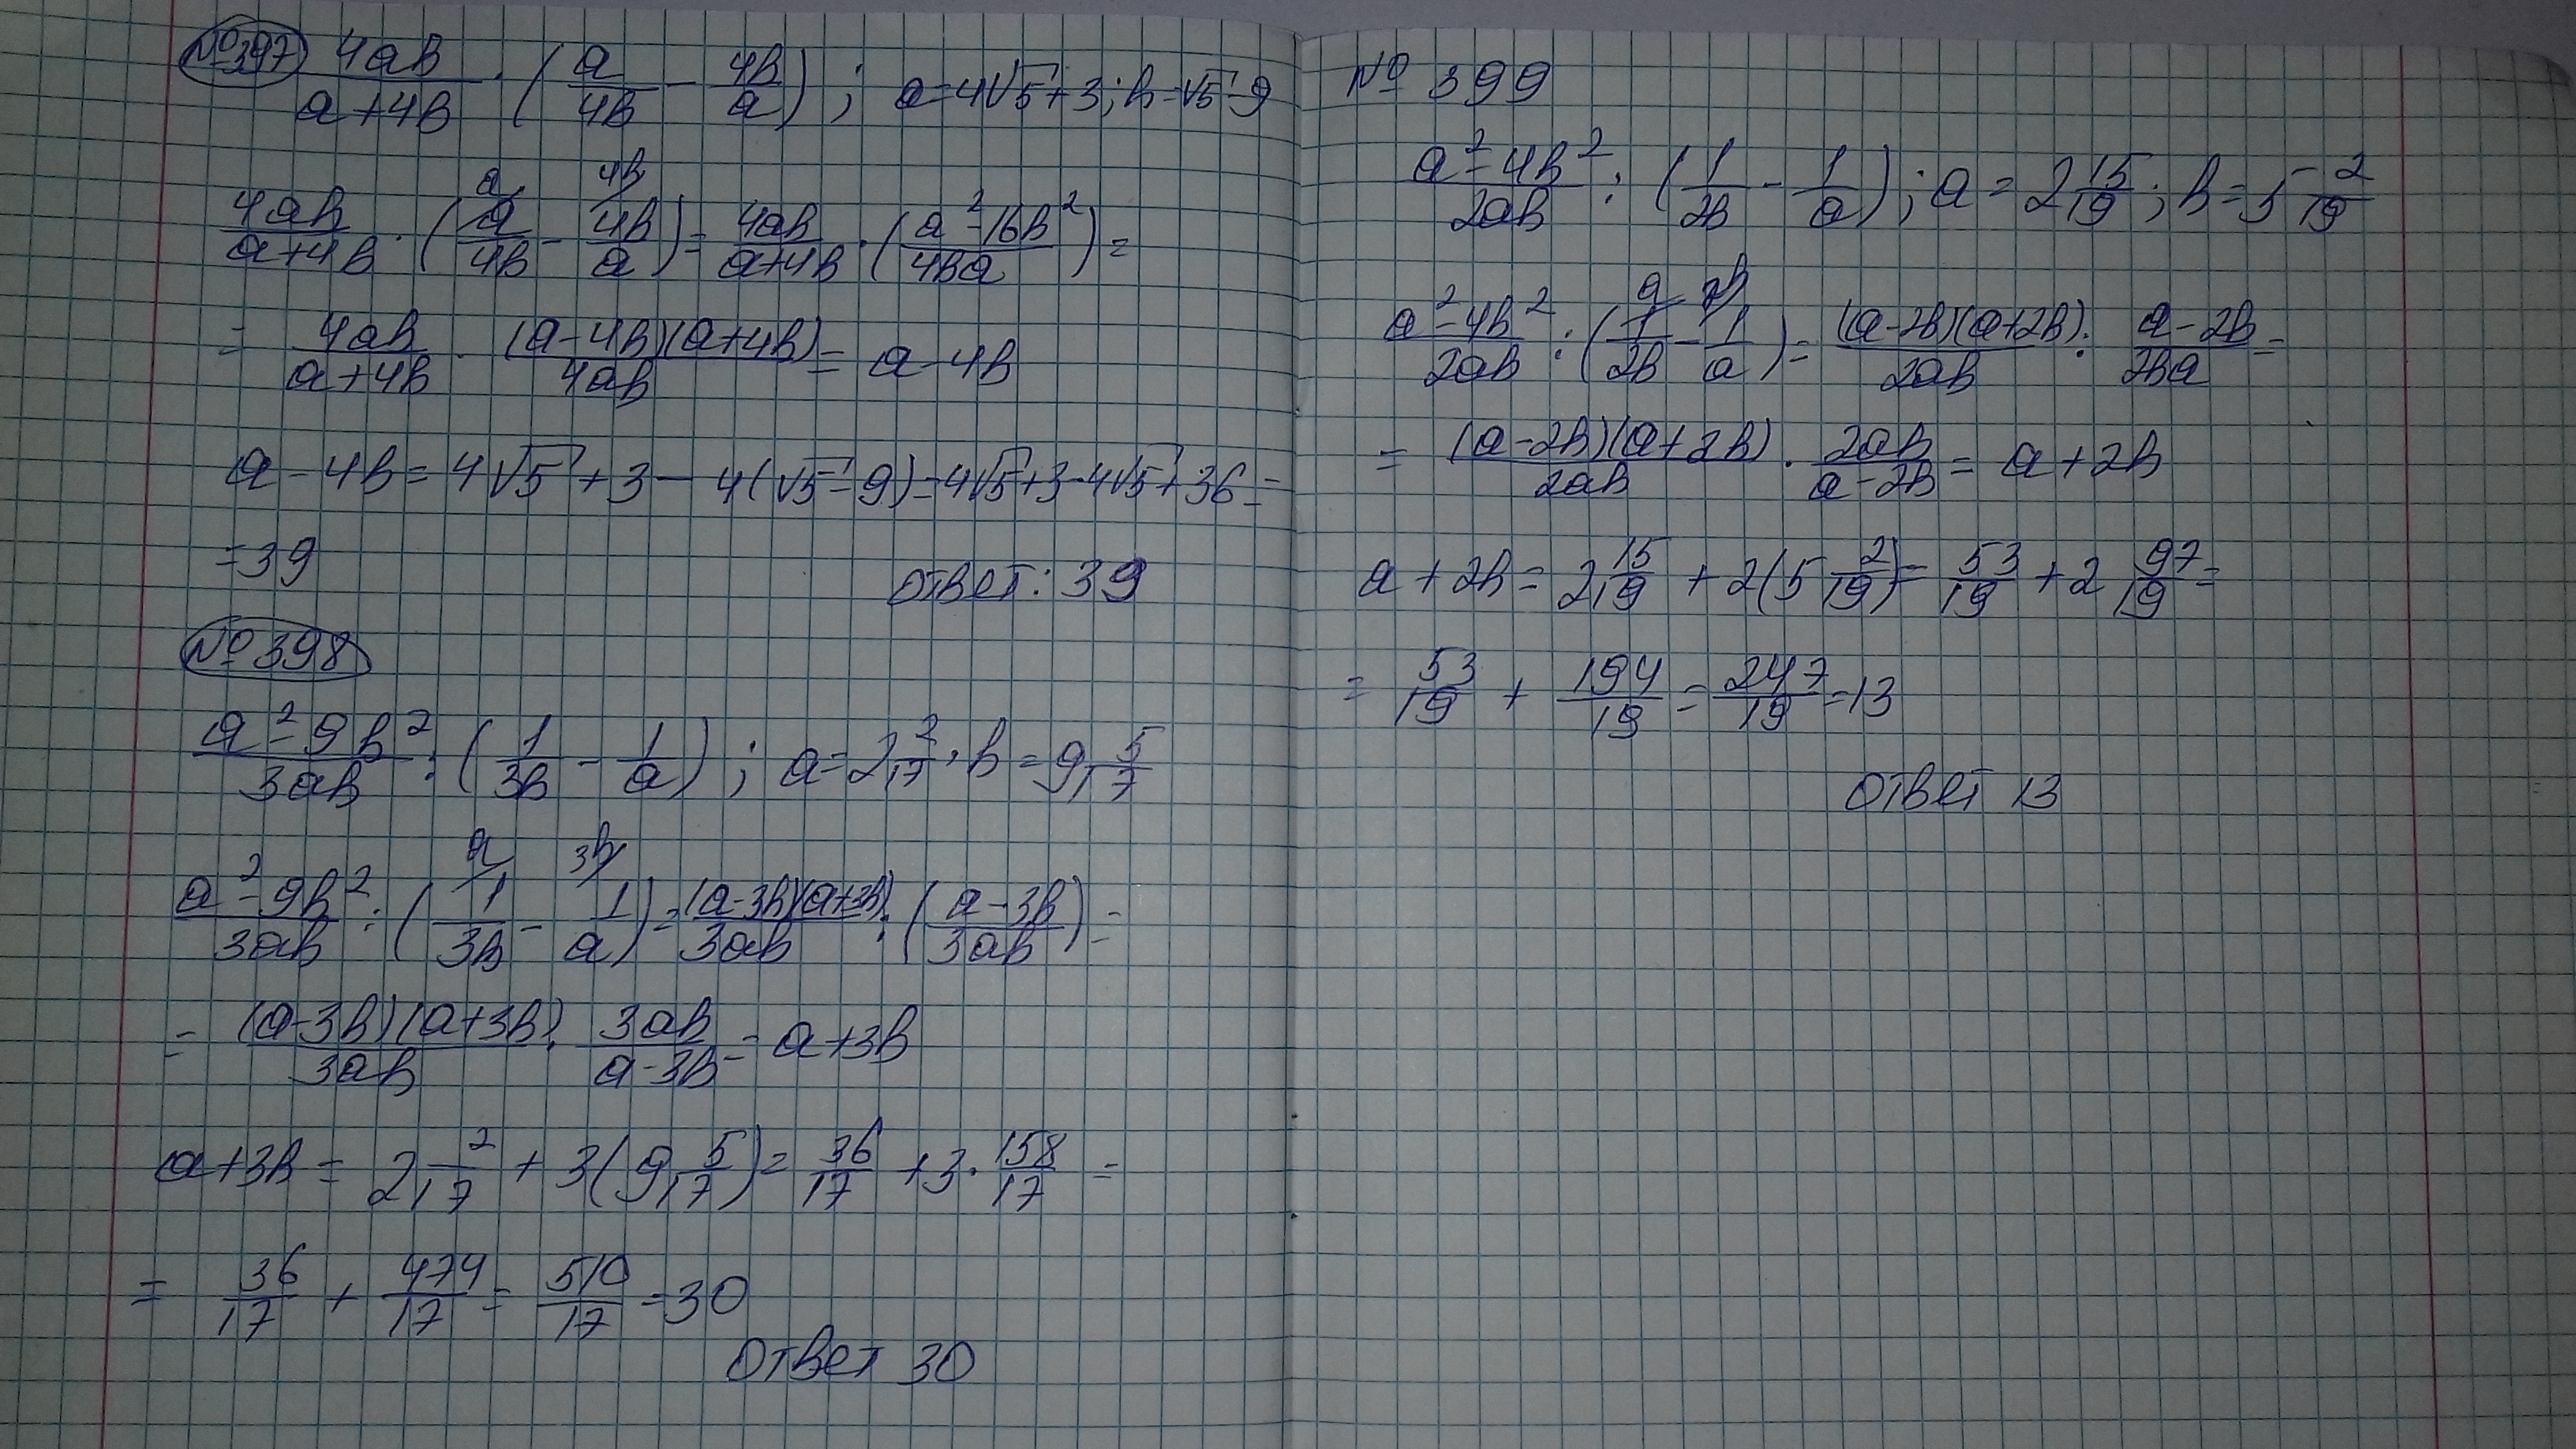 №397 4ab/(a+4b) · (a/4b - 4b/a); a=4√5+3; b=√5-9
4ab/(a+4b) · (a/4b - 4b/a) = 4ab/(a+4b) · ((a²-16b²)/4ba) =
= 4ab/(a+4b) · (a-4b)(a+4b)/4ab = a-4b
a-4b = 4√5+3-4(√5-9) = 4√5+3-4√5+36 =
=39
ответ: 39
№398
(a²-9b²)/3ab : (1/3b - 1/a); a=2 2/17; b=9 5/17
(a²-9b²)/3ab : (1/3b - 1/a) = (a-3b)(a+3b)/3ab : ((a-3b)/3ab) =
= (a-3b)(a+3b)/3ab · 3ab/(a-3b) = a+3b
a+3b = 2 2/17 + 3(9 5/17) = 36/17 + 3 · 158/17 =
= 36/17 + 474/17 = 510/17 = 30
ответ 30
№ 399
(a²-4b²)/2ab : (1/2b - 1/a); a = 2 15/19; b = 5 2/19
(a²-4b²)/2ab : (1/2b - 1/a) = (a-2b)(a+2b)/2ab : (a-2b)/2ba =
= (a-2b)(a+2b)/2ab · 2ab/(a-2b) = a+2b
a+2b = 2 15/19 + 2(5 2/19) = 53/19 + 2 97/19 =
= 53/19 + 194/19 = 247/19 = 13
ответ 13